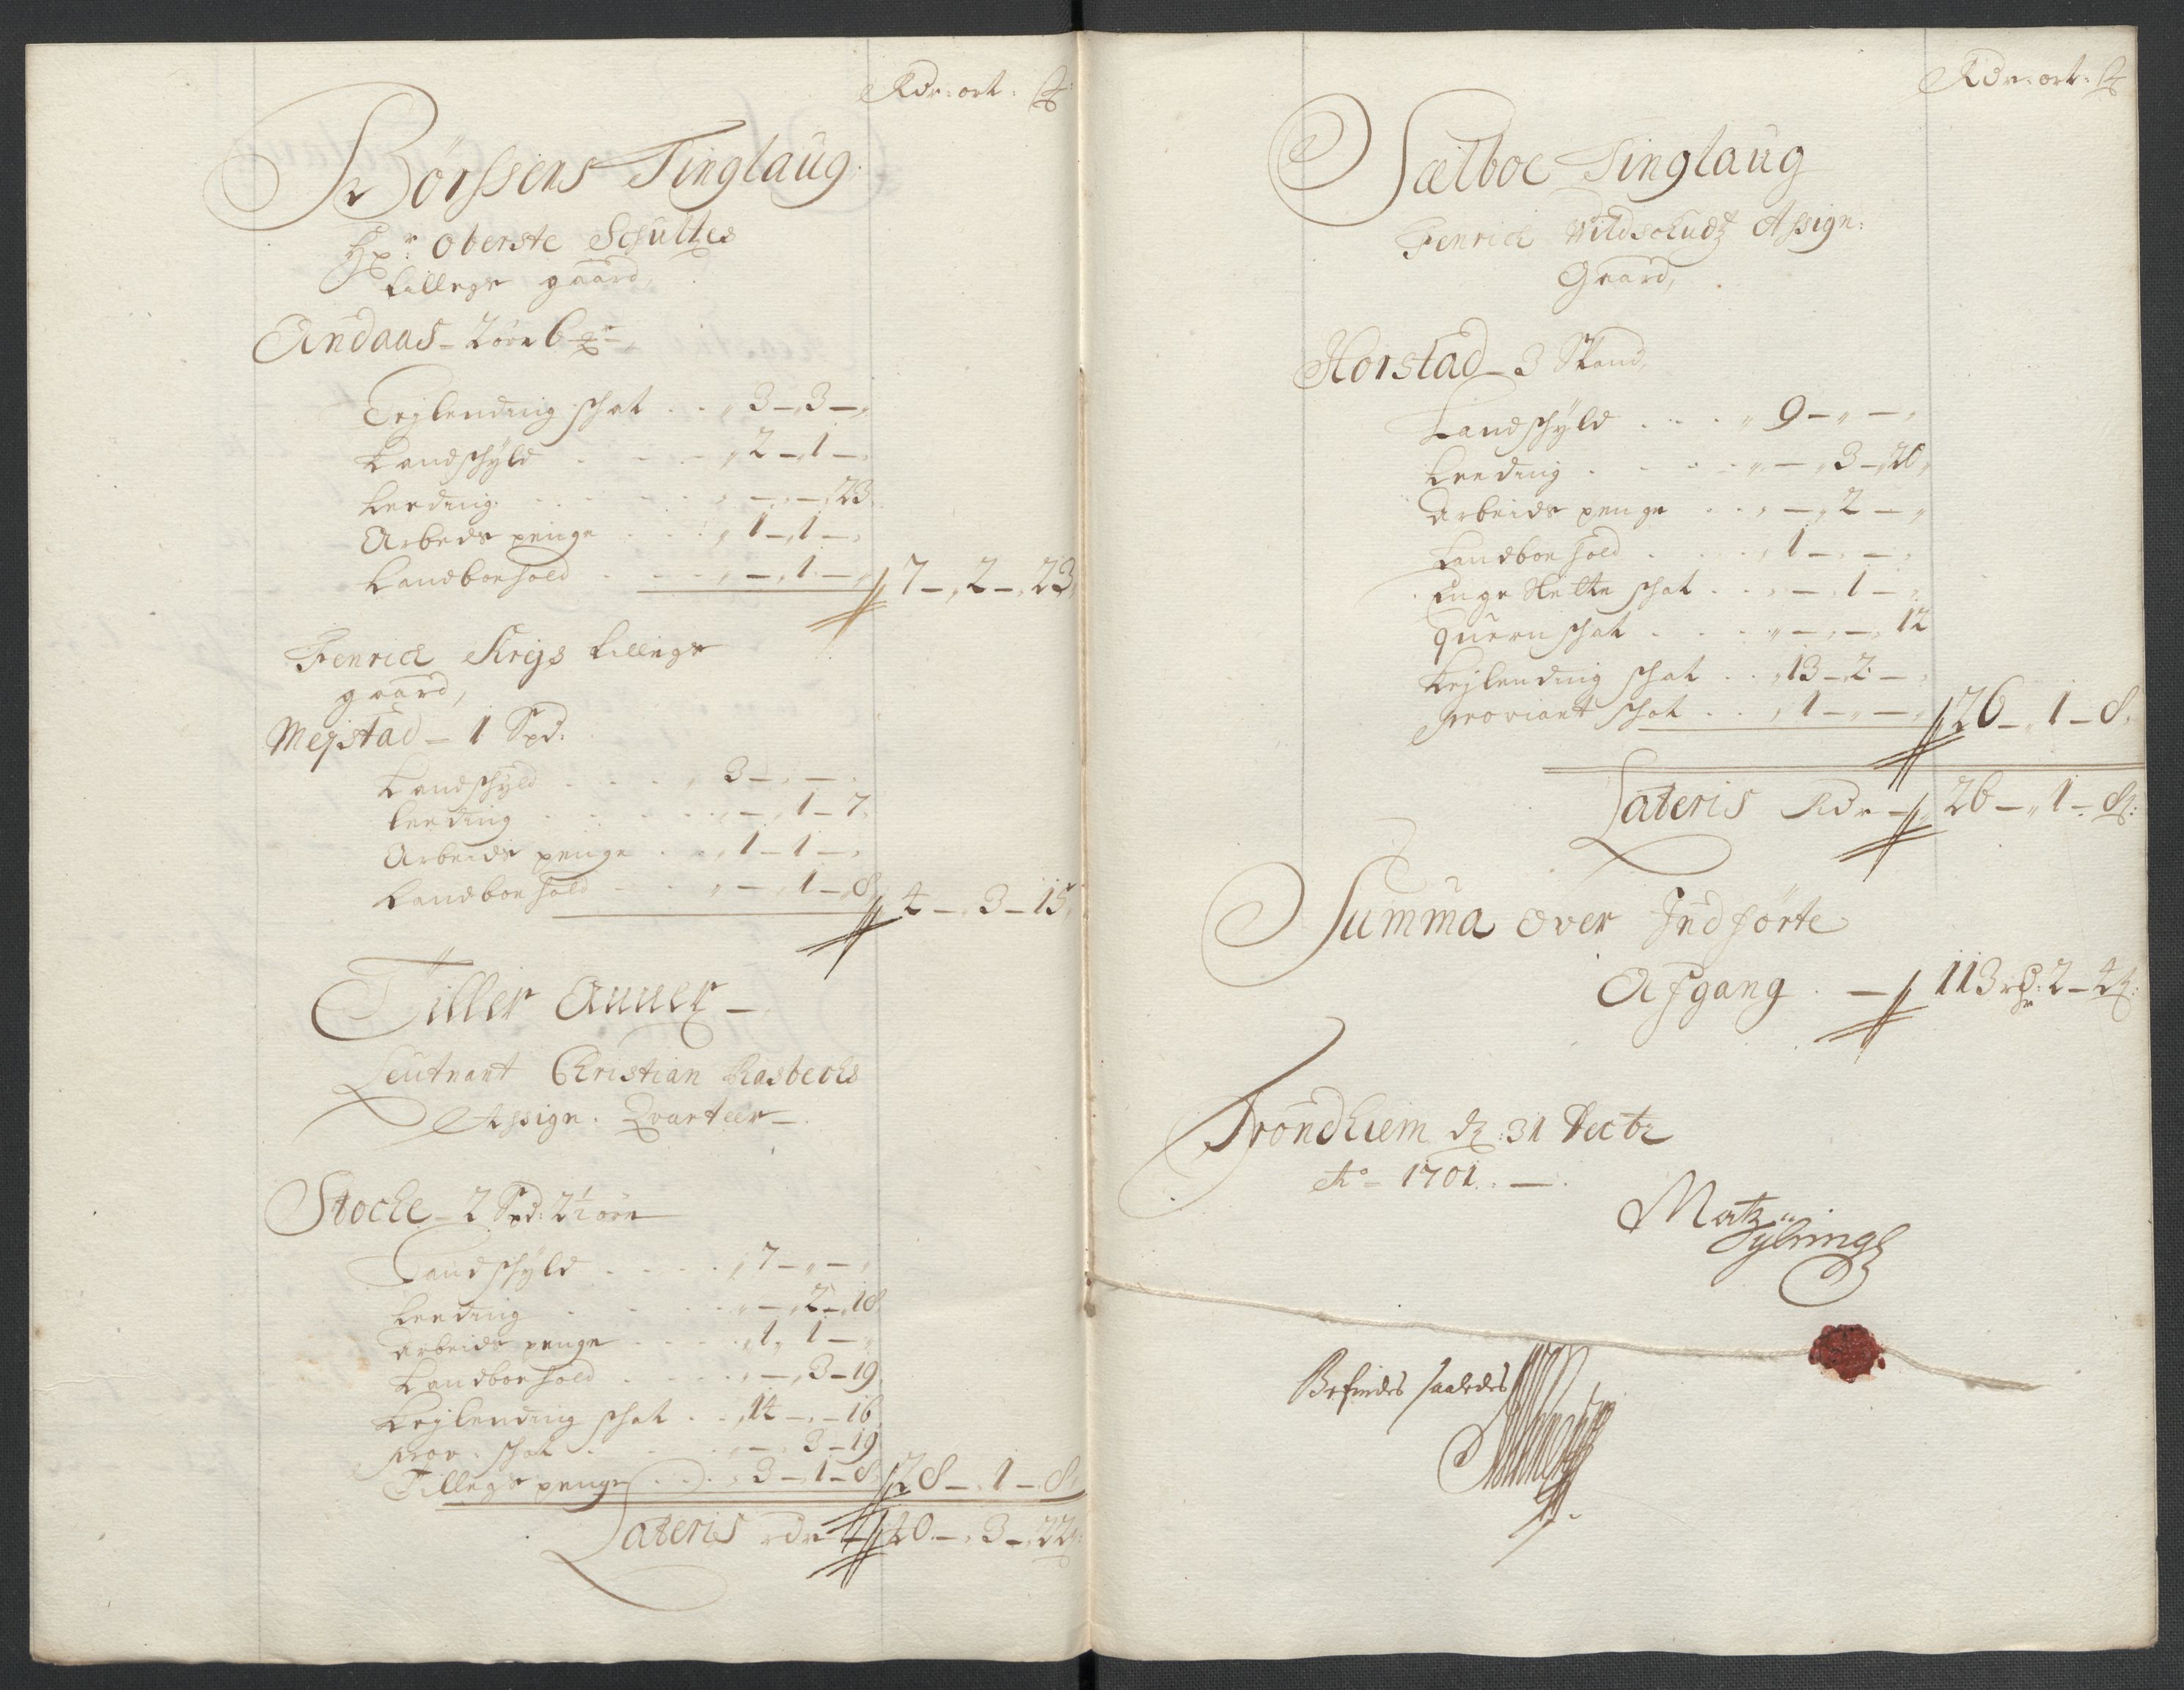 Rdr: ort: ß
Börssens Tinglaug
Hr: Oberste Schultes
tillegs gaard,
Andaas - 2 öre 6
Lejlending schat . . 3 - 3 -
Landschyld . . . 2 - 1 -
Leeding . . . - - 23
Arbeds penge . . 1 - 1 -
Landboehold . . . - 1 - 7 - 2 - 23
Fenrick Krigs tillegs
gaard,
Mejstad - 1 Spd:
Landschyld . . . 3 - -
Leeding . . . - 1 - 7
Arbeids penge . . 1 - 1 -
Landboehold . . - 1 - 8 4 - 3 - 15
Tiller Annex -
Leutnant Christian Rasbechs
Assign. Qvarteer -
Stocke - 2 Spd: 2½ öre
Landschyld . . . 7 - -
Leeding . . . - 2 - 18
Arbeids penge . . . 1 1 -
Landboehold . . . - 3 - 19
Lejlending schat . . 14 - - 16
prov: schat . . . - 3 - 19
Tillegs penge . . . 3 - 1 - 8 28 - 1 - 8
Lateris rdr 40 - 3 - 22
Rdr: ort: ß
Sælboe Tinglaug
Fenrick Wildschudtz Assign:
Gaard,
Horstad - 3 Spand,
Landschyld . . . 9 - -
Leeding . . . - 3 - 20
Arbeids penge . . - 2 -
Landboehold . . . 1 - -
Enge Slette schat . . - 1 -
Quern schat . . . - - 12
Lejlending schat . . 13 - 2 -
proviant schat . . 1 - - 26 - 1 - 8
Lateris Rdr - 26 - 1 - 8
Summa over Indförte
Afgang . - 113 rdr: 2 - 4
Trondhiem d: 31 Decbr
Ao - 1701. -
Befindes saaledes